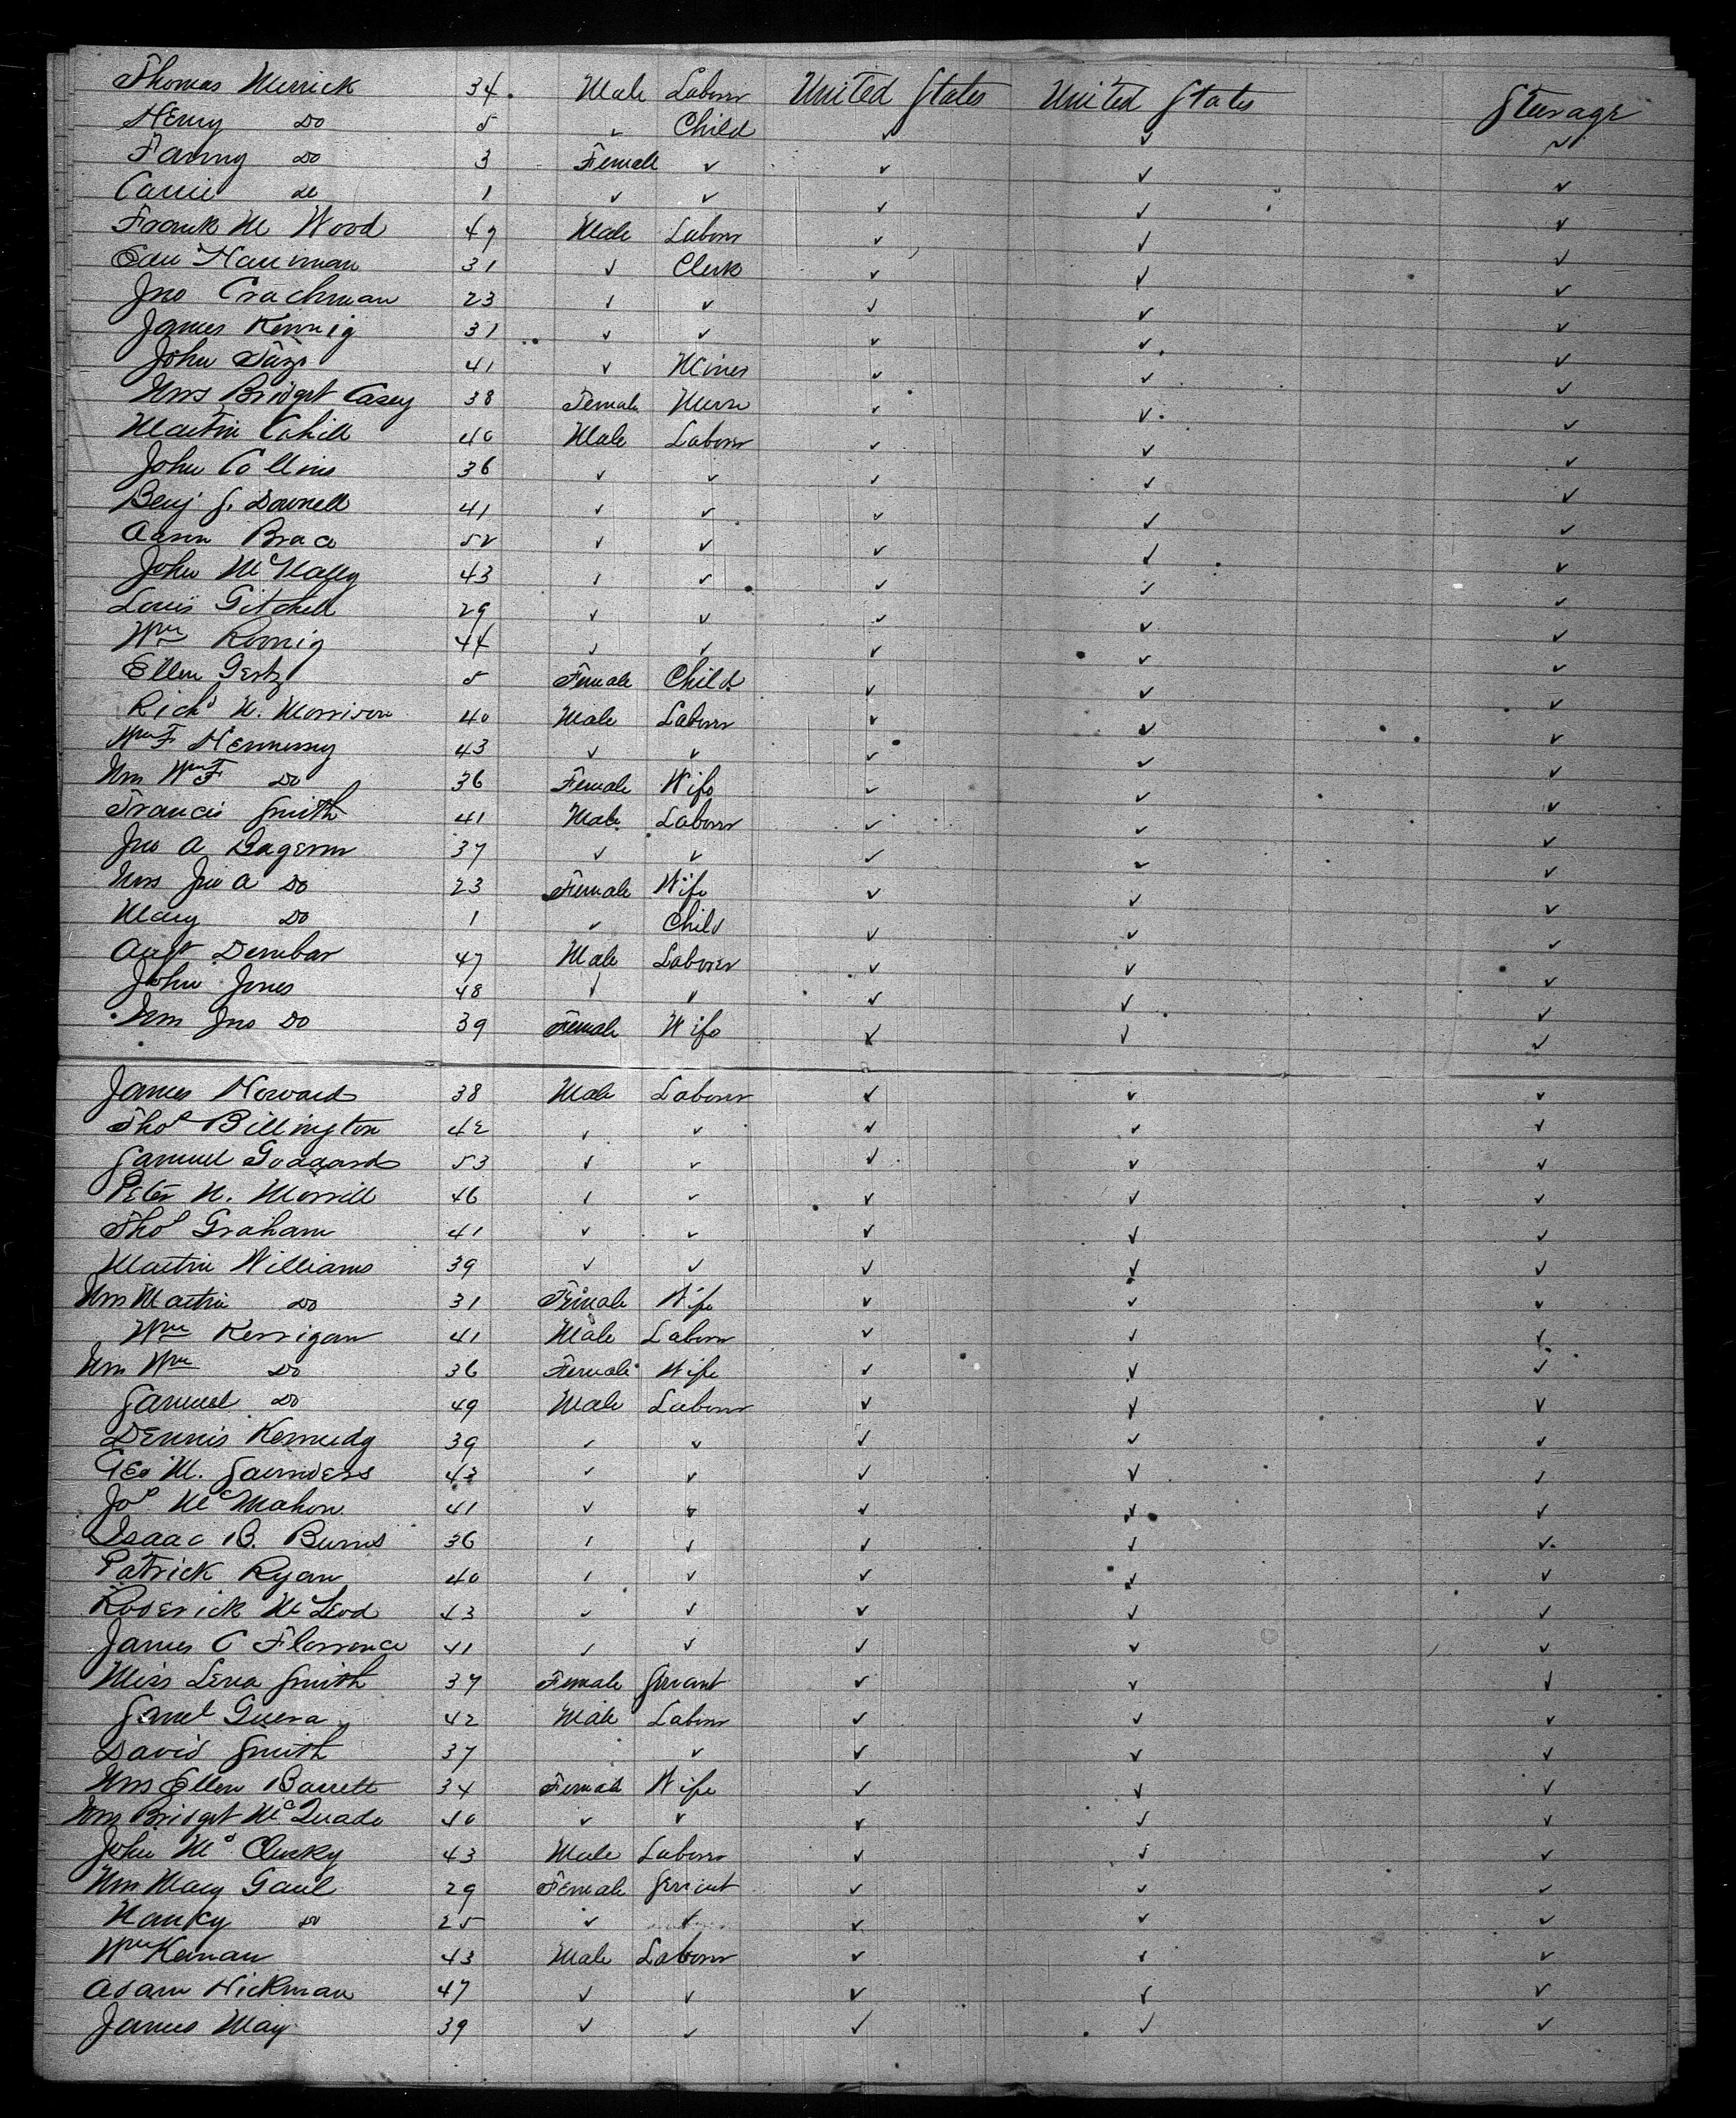 Thomas Merrick 34. Male Laborer United States United States Steerage
Henry Do 5 ✓ Child ✓ ✓ ✓
Fanny Do 3 Female ✓ ✓ ✓ ✓
Carrie Do 1 ✓ ✓ ✓ ✓ ✓
Frank M Wood 49 Male Laborer ✓ ✓ ✓
Harriman 31 ✓ Clerk ✓ ✓ ✓
Jno Crachman 23 ✓ ✓ ✓ ✓ ✓
James 31 ✓ ✓ ✓ ✓ ✓
John 41 ✓ Miner ✓ ✓ ✓
Mrs Bridget Casey 38 Female Nurse ✓ ✓ ✓
Martin Cahill 40 Male Laborer ✓ ✓ ✓
John Collins 36 ✓ ✓ ✓ ✓ ✓
Benj 41 ✓ ✓ ✓ ✓ ✓
Aaron 52 ✓ ✓ ✓ ✓ ✓
John McNally 43 ✓ ✓ ✓ ✓ ✓
Louis Gitchell 29 ✓ ✓ ✓ ✓ ✓
Wm 44 ✓ ✓ ✓ ✓ ✓
Ellen Gertz 5 Female Child ✓ ✓ ✓
Richd N. Morrison 40 Male Laborer ✓ ✓ ✓
Wm F Hennessy 43 ✓ ✓ ✓ ✓ ✓
Mrs Wm F Do 36 Female Wife ✓ ✓ ✓
Francis Smith 41 Male Laborer ✓ ✓ ✓
Jno A 37 ✓ ✓ ✓ ✓ ✓
Mrs Jno A Do 23 Female Wife ✓ ✓ ✓
Mary Do 1 ✓ Child ✓ ✓ ✓
Augt Dembar 47 Male Laborer ✓ ✓ ✓
John Jones 48 ✓ ✓ ✓ ✓ ✓
Mrs Jno Do 39 Female Wife ✓ ✓ ✓
James Howard 38 Male Laborer ✓ ✓ ✓
Thos Billington 42 ✓ ✓ ✓ ✓ ✓
Samuel Goddard 53 ✓ ✓ ✓ ✓ ✓
Peter N. Morrill 46 ✓ ✓ ✓ ✓ ✓
Thos Graham 41 ✓ ✓ ✓ ✓ ✓
Martin Williams 39 ✓ ✓ ✓ ✓ ✓
Mrs Martin Do 31 Female Wife ✓ ✓ ✓
Wm Kerrigan 41 Male Laborer ✓ ✓ ✓
Mrs Wm Do 36 Female Wife ✓ ✓ ✓
Samuel Do 49 Male Laborer ✓ ✓ ✓
Dennis Kennedy 39 ✓ ✓ ✓ ✓ ✓
Geo M. Saunders 43 ✓ ✓ ✓ ✓ ✓
Jos McMahon 41 ✓ ✓ ✓ ✓ ✓
Isaac B. Burns 36 ✓ ✓ ✓ ✓ ✓
Patrick Ryan 40 ✓ ✓ ✓ ✓ ✓
Roderick McLeod 43 ✓ ✓ ✓ ✓ ✓
James C Florrence 41 ✓ ✓ ✓ ✓ ✓
Miss Lena Smith 37 Female Servant ✓ ✓ ✓
Saml Guera 42 Male Laborer ✓ ✓ ✓
David Smith 37 ✓ ✓ ✓ ✓
Mrs Ellen Barrett 34 Female Wife ✓ ✓ ✓
Mrs Bridget McQuade 40 ✓ ✓ ✓ ✓ ✓
John McClusky 43 Male Laborer ✓ ✓ ✓
Mrs Mary Gaul 29 Female Servant ✓ ✓ ✓
Do 25 ✓ ✓ ✓ ✓ ✓
Wm Keenan 43 Male Laborer ✓ ✓ ✓
Adam Hickman 47 ✓ ✓ ✓ ✓ ✓
James May 39 ✓ ✓ ✓ ✓ ✓